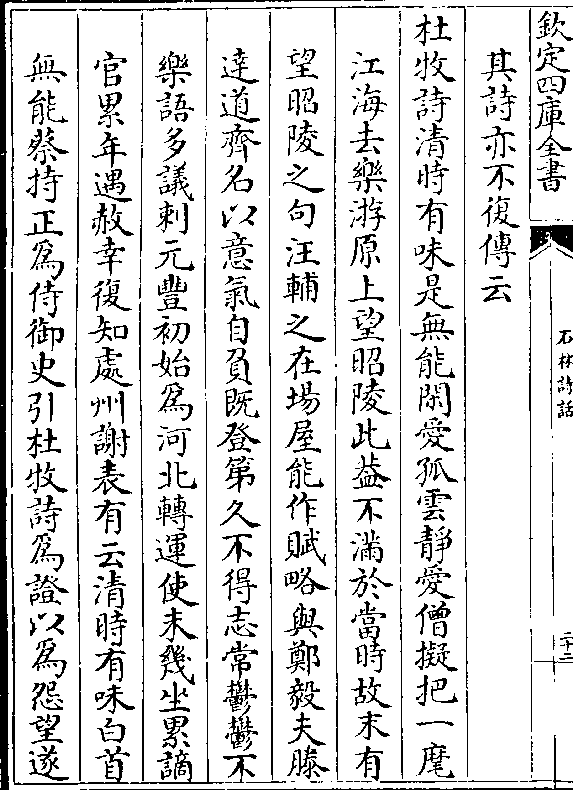 欽定四庫全書
石林詩話
二十二
其詩亦不復傳云
杜牧詩清時有味是無能閑愛孤雲靜愛僧擬把一麾
江海去樂游原上望昭陵此葢不滿於當時故末有
望昭陵之句汪輔之在場屋能作賦略與鄭毅夫滕
逹道齊名以意氣自負既登第久不得志常鬱鬱不
樂語多議刺元豐初始為河北轉運使未幾坐累謫
官累年遇赦幸復知處州謝表有云清時有味白首
無能蔡持正為侍御史引杜牧詩為證以為怨望遂